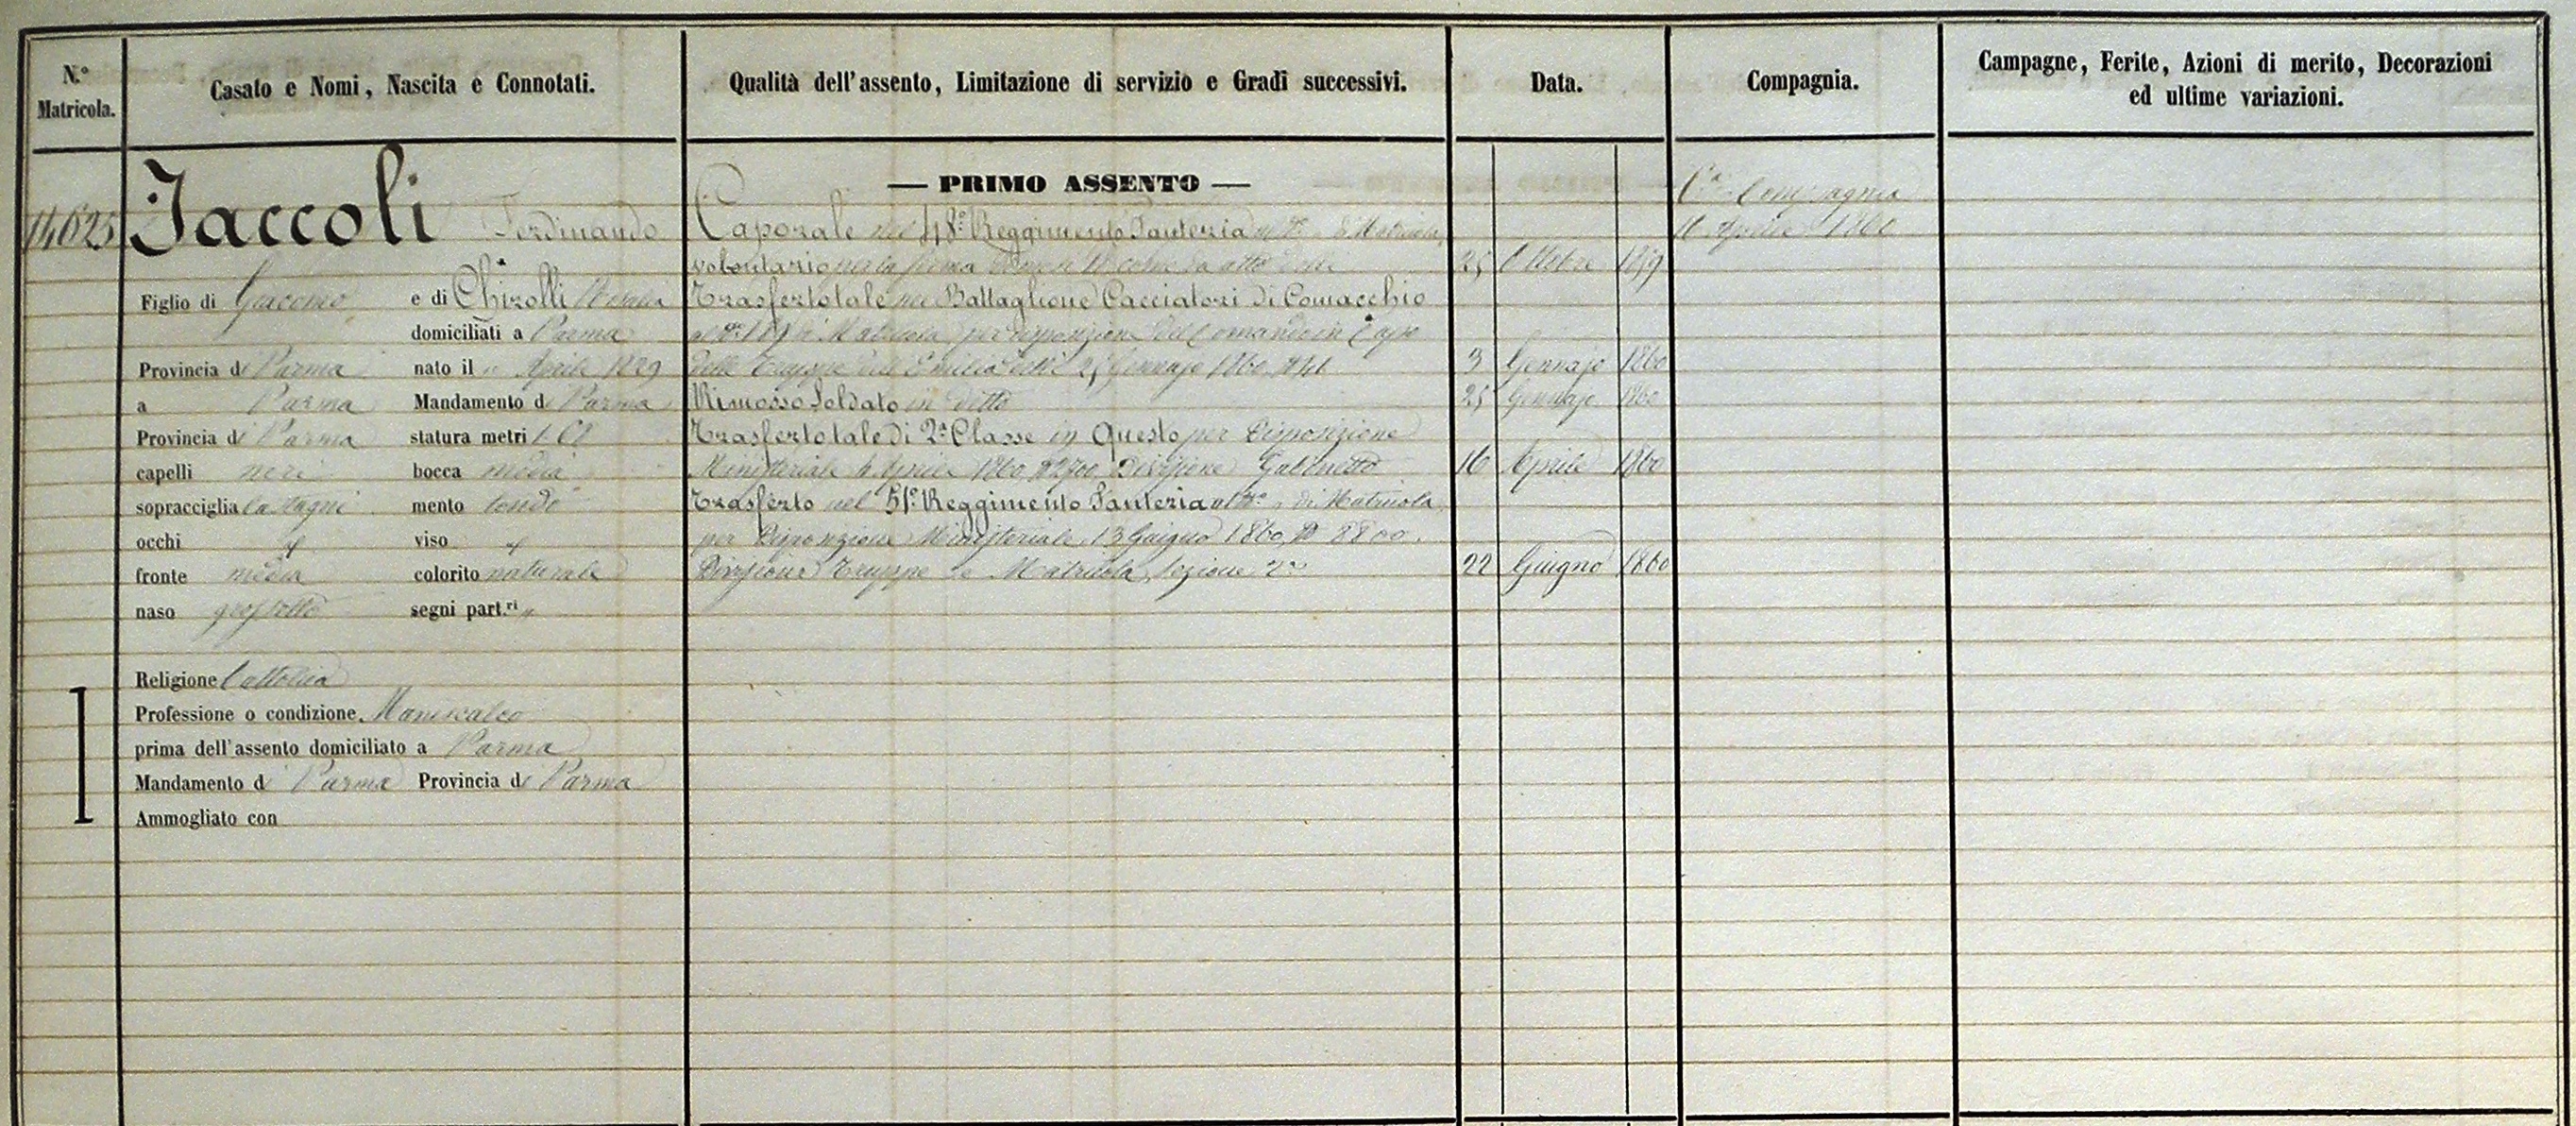 N.° Matricola.
Casato e Nomi, Nascita e Connotati.
Qualità dell'assento, Limitazione di servizio e Gradi successivi.
Data.
Compagnia.
Campagne, Ferite, Azioni di merito, Decorazioni
ed ultime variazioni.
14625
Iaccoli Ferdinando
Figlio di Giacomo e di Chirolli
domiciliati a Parma
Provincia di Parma nato il " Aprile 1829
a Parma Mandamento di Parma
Provincia di Parma statura metri
capelli neri bocca media
sopracciglia castagni mento tondo
occhi viso
fronte media colorito naturale
naso grossotto segni part.ri "
Religione Cattolica
Professione o condizione Maniscalco
prima dell'assento domiciliato a Parma
Mandamento di Parma Provincia di Parma
Ammogliato con
— PRIMO ASSENTO —
Caporale nel 48° Reggimento Fanteria al N° " di Matricola,
volontario per la ferma 25 Ottobre 1859
Trasferto tale nel Battaglione Cacciatori di Comacchio
di Matricola per disposizione del Comando in Capo
delle Truppe dell'Emilia 25 Gennajo 1860 3 Gennajo 1860
Rimosso Soldato in detto 25 Gennajo 1860
Trasferto tale di 2ª Classe in Questo per Disposizione
Ministeriale Aprile 1860 N° 2700 Divisione Gabinetto 16 Aprile 1860
Trasferto nel 51° Reggimento Fanteria al N° " di Matricola
per Disposizione Ministeriale 13 Giugno 1860 N° 8800.
Divisione Truppe e Matricola, Sezione 2ª 22 Giugno 1860
Compagnia
16 Aprile 1860